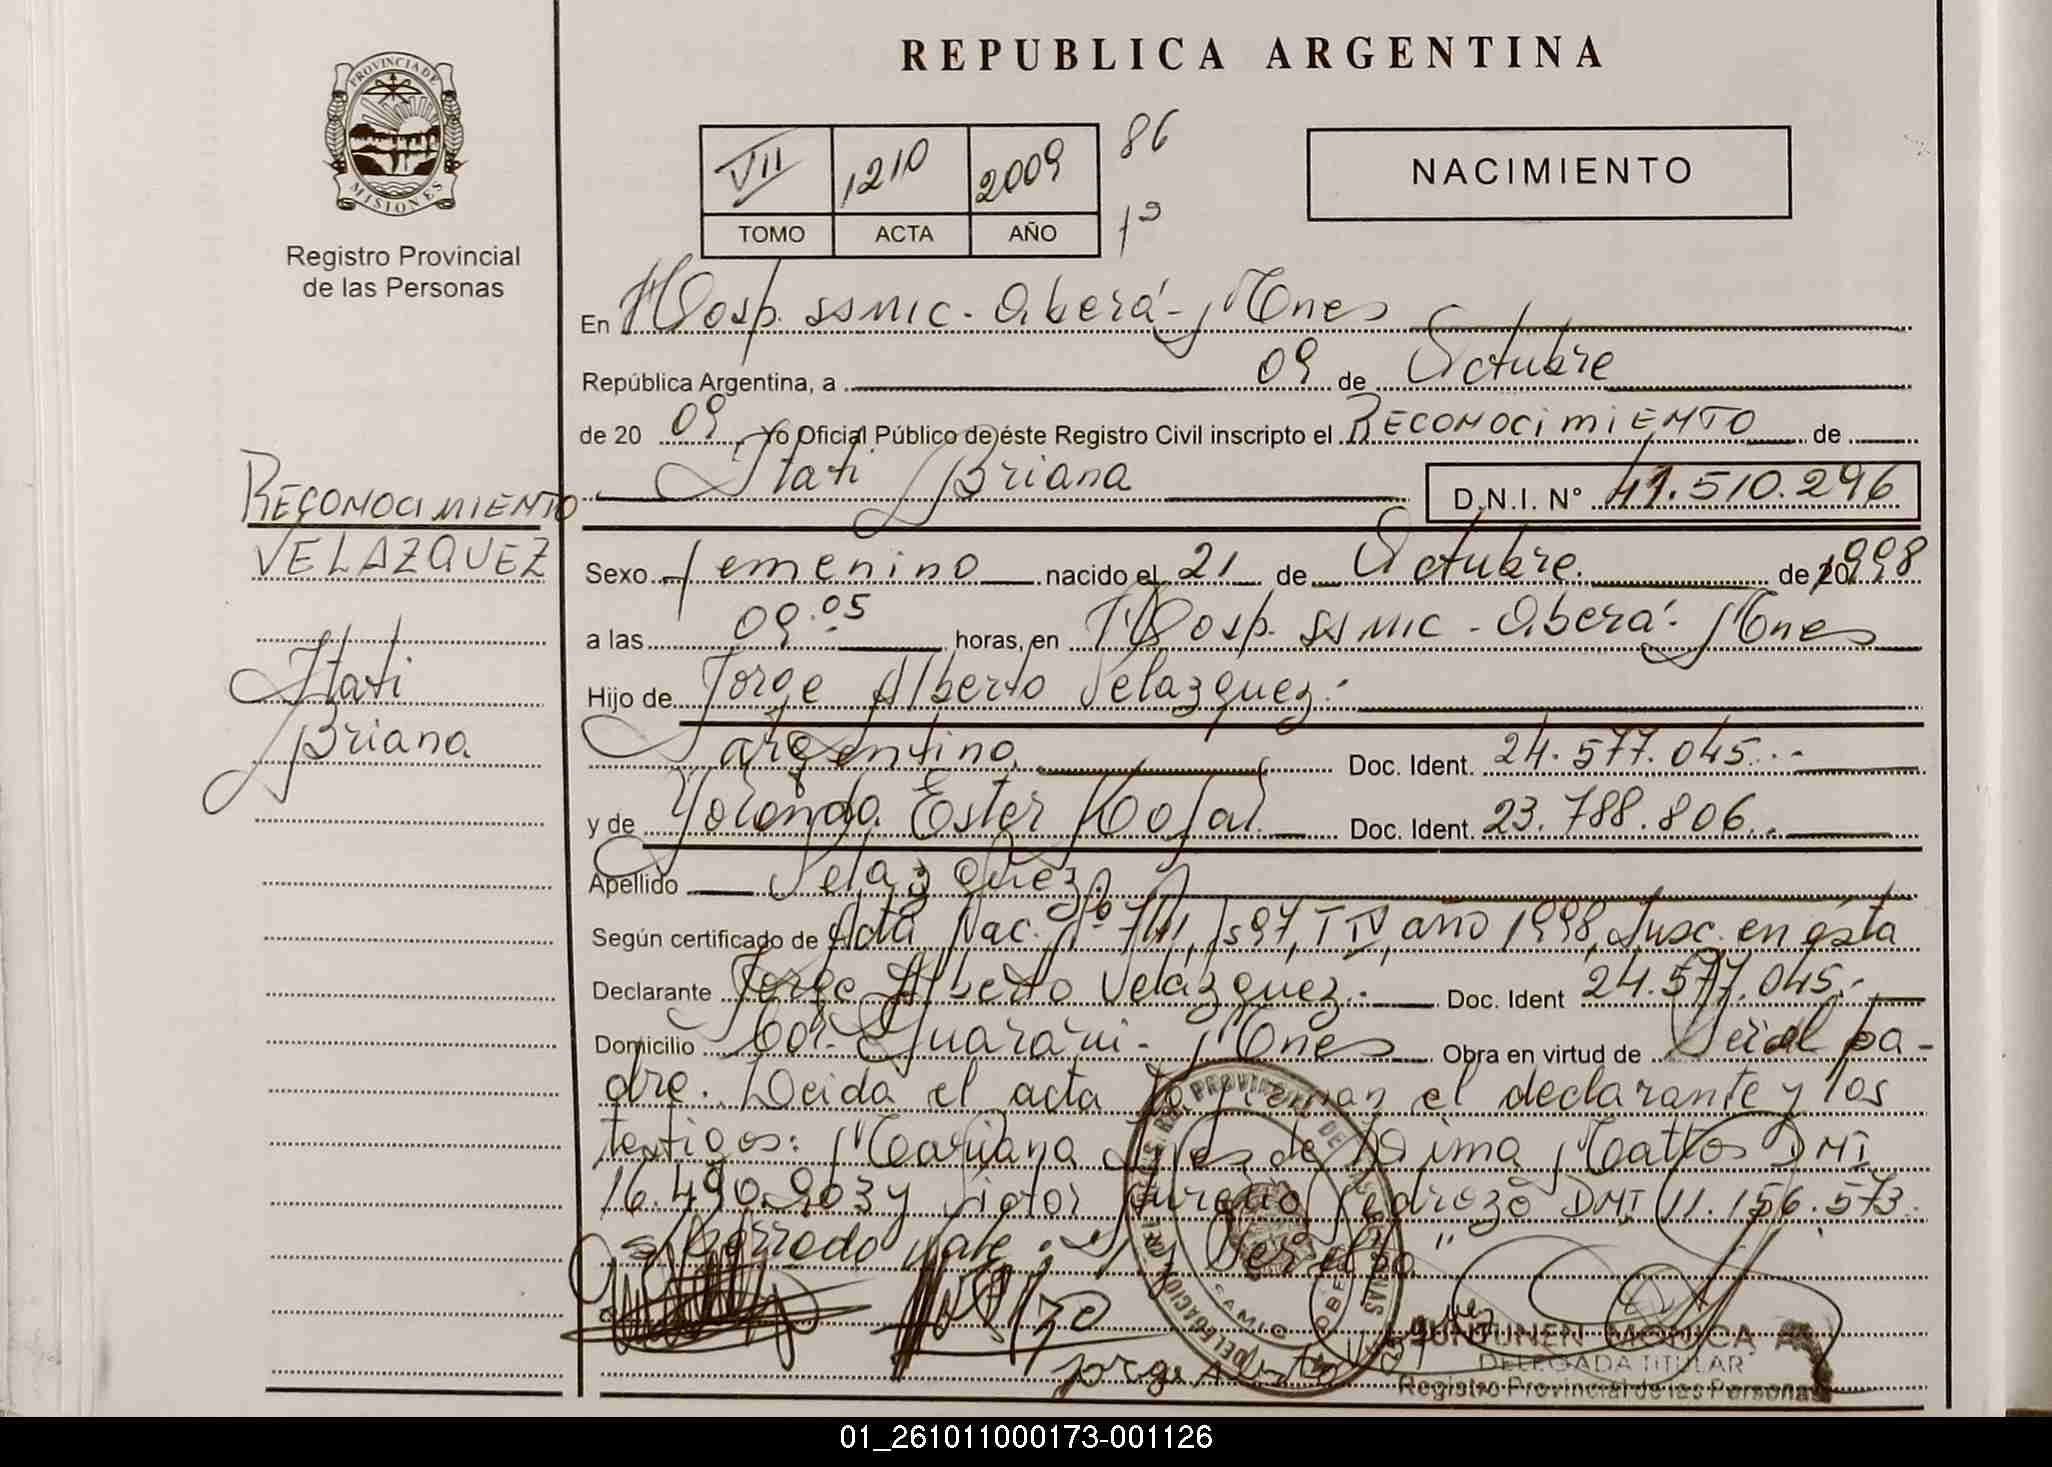 REPUBLICA ARGENTINA
PROVINCIA DE
MISIONES
Registro Provincial
de las Personas
VII 1210 2009 86
TOMO ACTA AÑO 1º
NACIMIENTO
En Hosp. SSMIC - Oberá - Mnes
República Argentina, a 09 de Octubre
de 20 09, Yo Oficial Público de éste Registro Civil inscripto el RECONOCIMIENTO de
Itati Briana D.N.I. Nº 41.510.296
RECONOCIMIENTO
VELAZQUEZ
Itati
Briana
Sexo femenino nacido el 21 de Octubre de 1998
a las 09:05 horas, en Hosp. SSMIC - Oberá - Mnes
Hijo de Jorge Alberto Velazquez.-
argentino Doc. Ident. 24.577.045.-
y de Yolanda Ester Doc. Ident. 23.788.806.
Apellido Velazquez
Según certificado de Acta Nac. Nº 741, Fs 97, T IV, año 1998, Insc. en ésta
Declarante Jorge Alberto Velazquez.- Doc. Ident 24.577.045.-
Domicilio Col. Guaraní - Mnes Obra en virtud de Ser el pa-
dre. Leida el acta la firman el declarante y los
testigos: Mariana de Lima Mattos DNI
16.490.903 y Victor Aurelio Pedrozo DNI 11.156.573.
Borrado vale: " Ser el pa "
Jorge Alberto
MONICA
DELEGADA TITULAR
Registro Provincial de las Personas
01_261011000173-001126